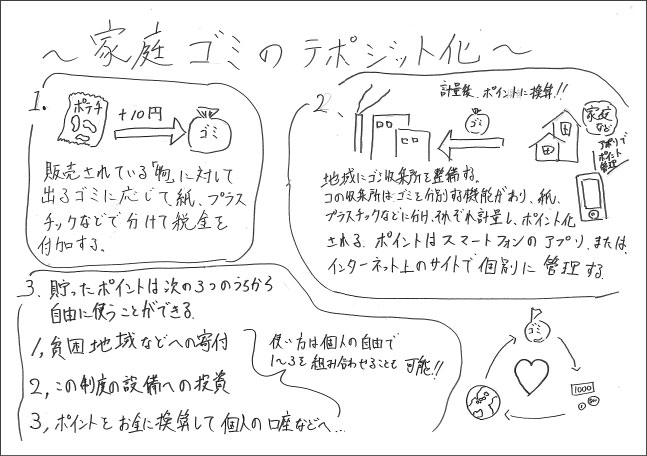 ～家庭ゴミのデポジット化～
1.
ポテチ
+10円
ゴミ
販売されている「物」に対して
出るゴミに応じて紙、プラス
チックなどで分けて税金を
付加する。
2、
計量後、ポイントに換算!!
ゴミ
家庭
など
アプリで
ポイント
管理
地域にゴミ収集所を整備する。
コの収集所はゴミを分別する機能があり、紙、
プラスチックなどに分け、それぞれ計量し、ポイント化
される。ポイントはスマートフォンのアプリ、または、
インターネット上のサイトで個別に管理する。
3、貯ったポイントは次の3つのうちから
自由に使うことができる。
1,貧困地域などへの寄付
2,この制度の設備への投資
3,ポイントをお金に換算して個人の口座などへ…
使い方は個人の自由で
1～3を組み合わせることも可能!!
ゴミ
1000